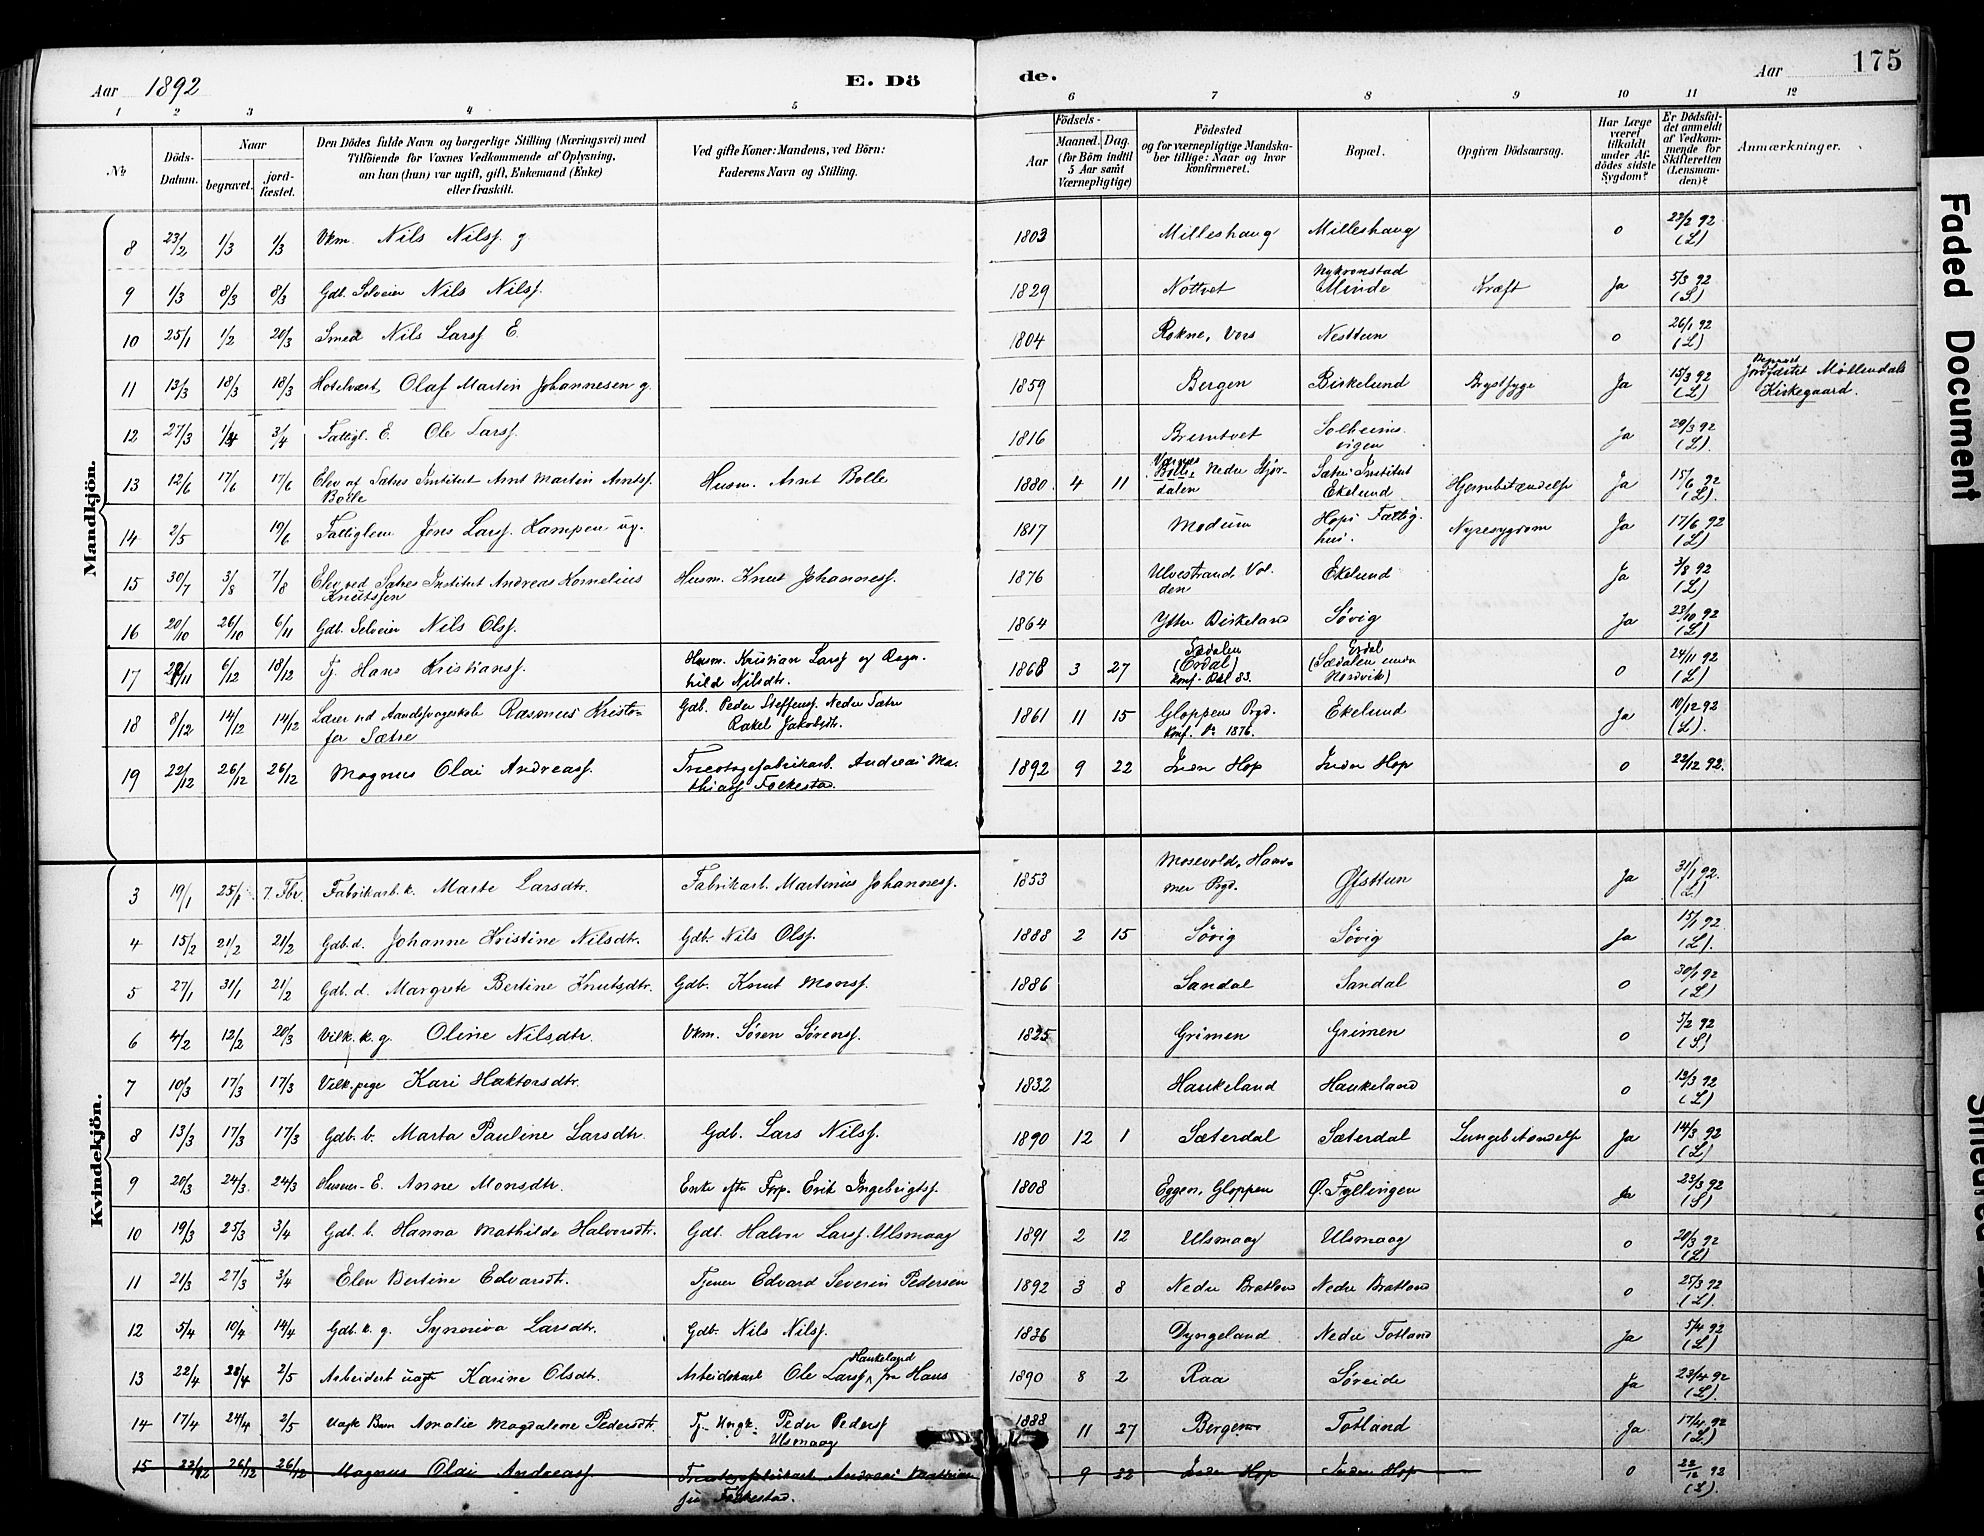 Aar 1892
E. Döde.
Aar
175
1 2 3 4 5 6 7 8 9 10 11 12
No
Döds-Datum.
Naar
begravet.
jord-fæstet.
Den Dödes fulde Navn og borgerlige Stilling (Næringsvei) med
Tilföiende for Voxnes Vedkommende af Oplysning,
om han (hun) var ugift, gift, Enkemand (Enke)
eller fraskilt.
Ved gifte Koner: Mandens, ved Börn:
Faderens Navn og Stilling.
Födsels-
Aar
Maaned. Dag.
(for Börn indtil
5 Aar samt
Værnepligtige)
Födested
og for værnepligtige Mandska-
ber tillige: Naar og hvor
konfirmeret.
Bopæl.
Opgiven Dödsaarsag.
Har Læge
været
tilkaldt
under Af-
dödes sidste
Sygdom?
Er Dödsfal-
det anmeldt
af Vedkom-
mende for
Skifteretten
(Lensman-
den)?
Anmærkninger.
Mandkjön.
8 23/2 1/3 1/3 Vkm. Nils Nilsf. g 1803 Milleshaug Milleshaug o 22/2 92 (L)
9 1/3 8/3 8/3 Gdb. Selveier Nils Nilsf. 1829 Nottvet Nykronstad Minde Kræft Ja 5/3 92 (S)
10 25/1 1/2 20/3 Smed Nils Larsf E. 1804 Rokne, Vors Nesttun o 26/1 92 (L)
11 13/3 18/3 18/3 Hotelvært Olaf Martin Johannesen g. 1859 Bergen Birkelund Brystsyge Ja 15/3 92 (L) Begravet Jordfæstet Möllendals Kirkegaard.
12 27/3 1/4 3/4 Fattigl. E. Ole Larsf. 1816 Bremtvet Solheims vigen Ja 29/3 92 (L).
13 12/6 17/6 17/6 Elev af Sætres Institut Arnt Martin Arntsf. Bolle Husm. Arnt Bolle 1880 4 11 Værnes Bolle, Nedre Stjør-dalen Sætres Institut Ekelund Hjernebetændelse Ja 15/6 92 (L).
14 2/5 19/6 Fattiglem Jens Larsf. Kampen ug. 1817 Modum Hops Fattig-hus. Nyresygdom Ja 17/6 92 (L)
15 30/7 3/8 7/8 Elev ved Sætres Institut Andreas Kornelius Knutssen Husm. Knut Johannesf. 1876 Ulvestrand, Vol-den Ekelund Ja 3/8 92 (L)
16 20/10 26/10 6/11 Gdb. Selveier Nils Olsf. 1864 Ytre Birkeland Søvig Ja 23/10 92 (L)
17 /11 6/12 18/12 Tj. Hans Kristiansf. Husm. Kristian Larsf og Ragn-hild Nilsdtr. 1868 3 27 Sædalen (Ørdal) konf. Okt 83. Ørdal (Sædalen under Nordvik) o 24/11 92 (L)
18 8/12 14/12 14/12 Lærer ved Aandssvageskole Rasmus Kristo-fer Sætre Gdb. Peder Steffensf. Nedre Sætre Rakel Jakobsdtr. 1861 11 15 Gloppens Prgd. konf. Do 1876. Ekelund Ja 10/12 92 (L).
19 22/12 26/12 26/12 Magnus Olai Andreasf. Tricotagefabrikarb. Andreas Ma-thiasf Folkestad. 1892 9 22 Indre Hop Indre Hop o 22/12 92.
Kvindekjön.
3 19/1 25/1 7. Fbr. Fabrikarb. k. Marte Larsdtr. Fabrikarb. Martinus Johannesf. 1853 Mosevold, Ham-mer Prgd. Øfsttun Ja 31/1 92. (L)
4 15/2 21/2 21/2 Gdb. d. Johanne Kristine Nilsdtr. Gdb. Nils Olsf. 1888 2 15 Søvig Søvig Ja 15/1 92. (L).
5 27/1 31/1 21/2 Gdb. d. Margrete Bertine Knutsdtr. Gdb. Knut Monsf. 1886 Sandal Sandal o 30/1 92 (L)
6 4/2 12/2 20/3 Vilk. k. g. Oline Nilsdtr. Vkm. Søren Sørensf. 1825 Grimen Grimen o 5/2 92 (S)
7 10/3 17/3 17/3 Vilk. pige Kari Haktorsdtr. 1832 Haukeland Haukeland o 13/3 92 (L)
8 13/3 17/3 17/3 Gdb. b. Marta Pauline Larsdtr. Gdb. Lars Nilsf. 1890 12 1 Sæterdal Sæterdal Lungebetændelse Ja 14/3 92 (L)
9 20/3 24/3 24/3 Husm. E. Anne Monsdtr. Enke efter Frp. Erik Ingebrigtsf. 1808 Eggen, Gloppen Ø. Fyllingen Ja 23/3 92 (S)
10 19/3 25/3 3/4 Gdb. b. Hanna Mathilde Halvorsdtr. Gdb. Halvor Larsf. Ulsmaag 1891 2 12 Ulsmaag Ulsmaag o 20/3 92 (L)
11 21/3 27/3 3/4 Elen Bertine Edvarsdtr. Tjener Edvard Severin Pedersen 1892 3 8 Nedre Bratland Nedre Bratland o 25/3 92 (L).
12 5/4 10/4 14/4 Gdb. k. g. Synneva Larsdtr. Gdb. Nils Nilsf. 1836 Dyngeland Nedre Totland Ja 5/4 92 (L)
13 22/4 28/4 2/5 Arbeiderb uægte Karine Olsdtr. Arbeidskarl Ole Larsf Haukeland fra Haus 1890 8 2 Raa Søreide Ja 23/4 92 (L).
14 17/4 24/4 2/5 uægte Barn Amalie Magdalene Pedersdtr. Tj. Ungk. Peder Pedersf Ulsmaag 1888 11 27 Bergen Totland Ja 17/4 92 (L)
15 22/12 26/12 26/12 Magnus Olai Andreasf. Tricotagefabrikarb. Andreas Mathias-sen Folkestad. 9 22 Indre Hop Indre Hop o 22/12 92 (L).
Faded Document